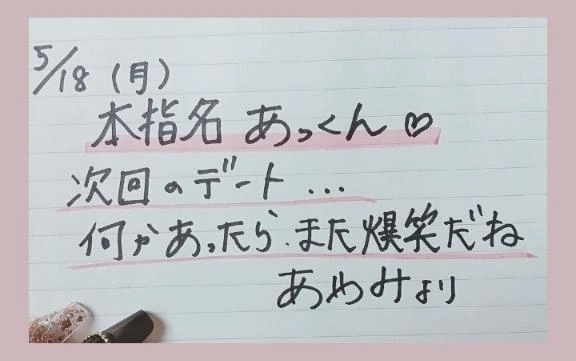 5/18（月）
本指名 あっくん♡
次回のデート...
何かあったら、また爆笑だね
あやみより